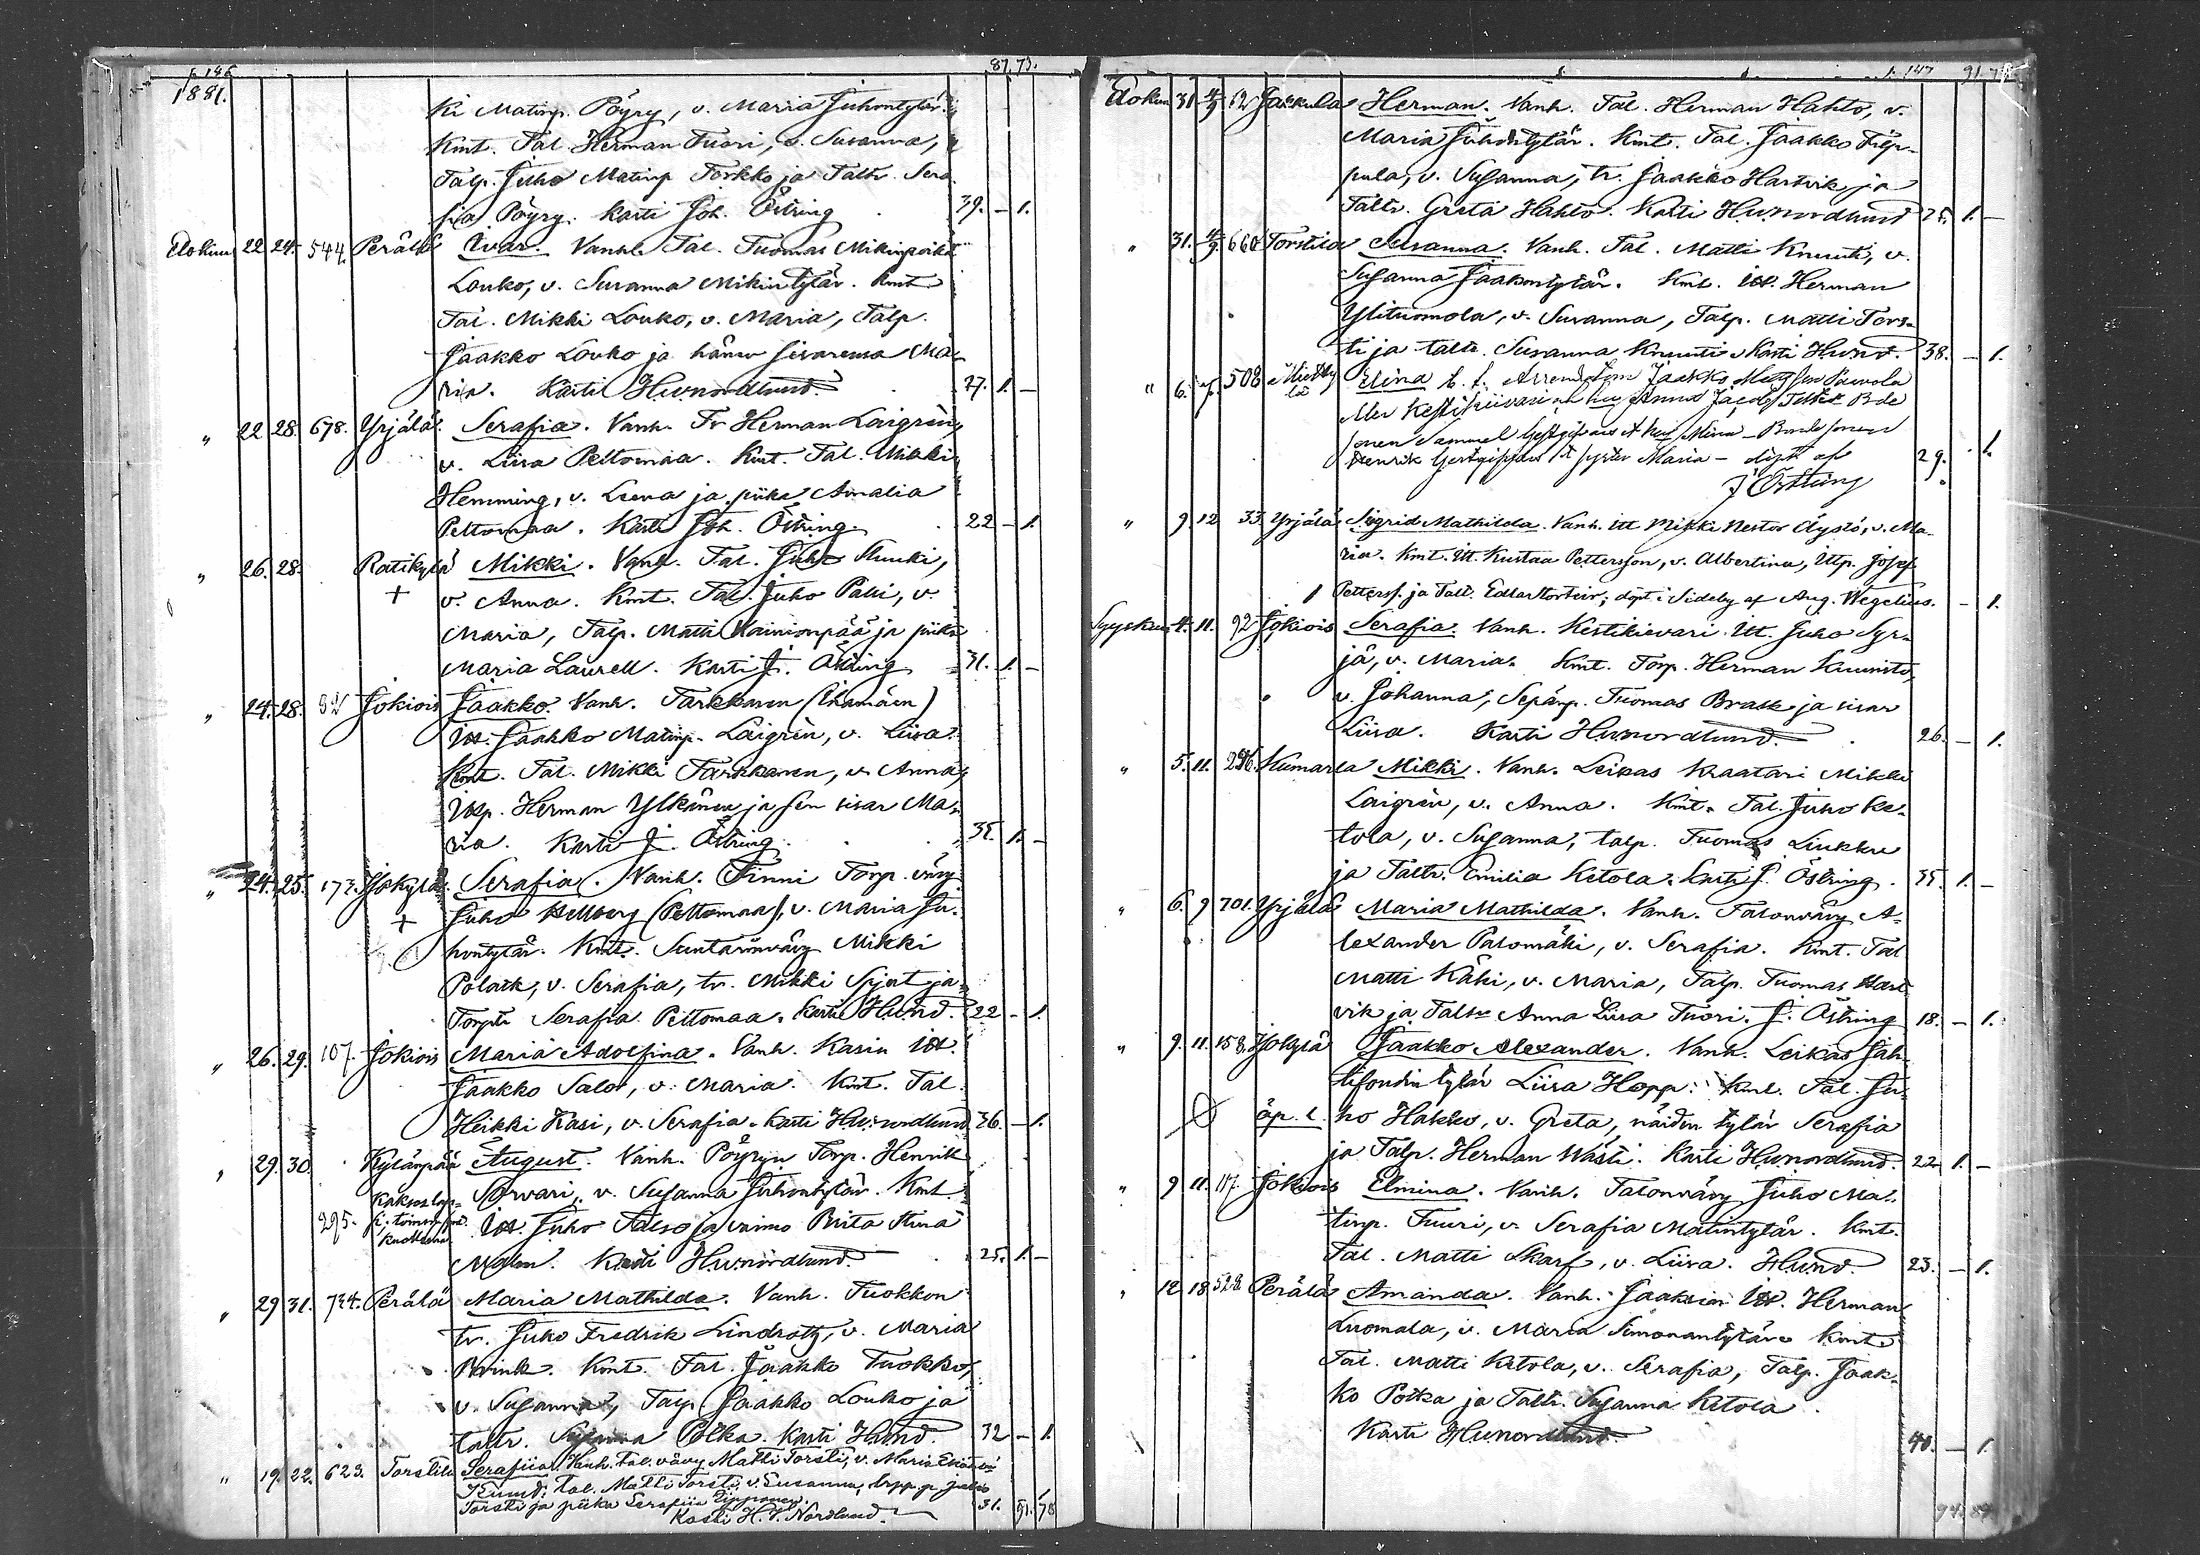 p 146 87. 73.
1881.
ki Matinp. Pöyry, v. Maria Juhontytär.
Kmt. Tal Herman Tuori, v. Susanna,
Talp. Juho Matinp Torkko ja Taltr. Sera
fia Pöyry. Kasti Joh. Östring 39. - 1.
Elokuu 22 24. 544. Perälä Ivar. Vanh. Tal. Tuomas Mikinpoika
Louko, v. Susanna Mikintytär. Kmt
Tal. Mikki Louko, v. Maria, Talp.
Jaakko Louko ja hänen sisarensa Ma-
ria. Kasti H.W.Nordlund. 27. 1. -
" 22 28. 678. Yrjälä. Serafia. Vanh. Tr Herman Laigrén,
v. Liisa Peltomaa. Kmt. Tal. Mikki
Hemming, v. Leena ja piika Amalia
Peltomaa. Kasti Joh. Östring 22 - 1.
" 26. 28. Ratikylä Mikki. Vanh. Tal. Juho Kuuki,
+ v. Anna. Kmt. Tal. Juho Paki, v.
Maria, Talp. Matti Vainionpää ja piika
Maria Laurell. Kasti J. Östring 31. 1. -
" 24. 28. 92 Jokiois Jaakko. Vanh. Tarkkanen (Ihamäen)
Itt. Jaakko Matinp. Laigrén, v. Liisa.
Kmt. Tal. Mikki Tarkkanen, v. Anna,
Itp. Herman Ylkänen ja sen sisar Ma-
ria. Kasti J. Östring. 35. 1. -
" 24. 25. 173. Yjokylä Serafia. Vanh. Finni Torp. vävy
+ Juho Hellberg (Peltomaa), v. Maria Ju-
hontytär. Kmt. Suntarinvävy Mikki
Polark, v. Serafia, tr. Mikki Sjert ja
Torptr Serafia Peltomaa. Kasti H.W.Nd. 22 - 1.
" 26. 29. 107. Jokiois Maria Adolfina. Vanh. Kasin Itt.
Jaakko Salo, v. Maria. Kmt. Tal.
Heikki Kasi, v. Serafia. Kasti H.W.Nordlund 36. - 1.
" 29. 30. Kylänpää August. Vanh. Pöyryn Torp. Henrik
Kaksoslap- Sorvari, v. Susanna Juhontytär. Kmt.
295. Itt. Juho Talso ja vaimo Brita Stina
Malm. Kasti H.W.Nordlund. 25. 1. -
" 29 31. 724. Perälä Maria Mathilda. Vanh. Tuokkon
tr. Juho Fredrik Lindroth, v. Maria
Brink. Kmt. Tal. Jaakko Tuokko,
v. Susanna, Talp. Jaakko Louko ja
taltr. Susanna Polka. Kasti H.W.Nd. 32 - 1.
" 19. 22. 623. Torstila Serafiia. Vanh. Tal. vävy Matti Torsti, v. Maria
Kumd: tal. Matti Torsti, v. Susanna, Juho
Torsti ja piika Serafiia 31. 91. 75
Kasti H.V. Nordlund.
p. 147 91. 75
Elokuu 31. 4/9 62 Jakkula Herman. Vanh. Tal. Herman Hahto, v.
Maria Juhontytär. Kmt. Tal. Jaakko Filp-
pula, v. Susanna, tr. Jaakko Hartvik ja
Taltr. Greta Hahto. Kasti H.W.Nordlund 25. 1. -
" 31. 4/9 660 Torstila Susanna. Vanh. Tal. Matti Knuuti, v.
Susanna Jaakontytär. Kmt. Itt. Herman
Ylituomola, v. Susanna, Talp. Matti Tors-
ti ja taltr. Susanna Knuuti. Kasti H.W.Nd. 38. - 1.
" 6. 508 Miekky Elina Jaakko Matsson Paavola
lä Anna Jacobs
Samuel Mina
Henrik syster Maria - döpt af 29. 1.
J Östring
" 9 12 33 Yrjälä Sigrid Mathilda. Vanh. itt Mikki Nestor Äystö, v. Ma-
ria. Kmt. Itt. Kustaa Pettersson, v. Albertina, Itp. Josef
Petterss. ja Taltr. Edla döpt i Sideby af Aug. Wegelius. - 1.
Syyskuu 4. 11. 92 Jokiois Serafia. Vanh. Kestikievari Itt. Juho Syr-
jä, v. Maria. Kmt. Torp. Herman Kuuristo,
v. Johanna, Sepänp. Tuomas Brask ja sisar
Liisa. Kasti H.W.Nordlund. 26. - 1.
" 5. 11. 296. Kumarla Mikki. Vanh. Leikas Kraatari Mikki
Laigrén, v. Anna. Kmt. Tal. Juho Ke-
tola, v. Susanna, talp. Tuomas Liukku
ja Taltr. Emilia Ketola. Kasti J. Östring. 35. 1. -
" 6. 9 701. Yrjälä Maria Mathilda. Vanh. Talonvävy A-
lexander Palomäki, v. Serafia. Kmt. Tal
Matti Käki, v. Maria, Talp. Tuomas Hart
vik ja Taltr Anna Liisa Tuori. J. Östring 18. - 1.
" 9. 11. 158. Yjokylä Jaakko Alexander. Vanh. Leikas
tytär Liisa Hopp. Kmt. Tal. Ju-
äp. l. ho Hakko, v. Greta, näiden tytär Serafia
ja Talp. Herman Wästi. Kasti H.W.Nordlund. 22 1. -
" 9 11. 117. Jokiois Elmina. Vanh. Talonvävy Juho Ma-
tinp. Tuuri, v. Serafia Matintytär. Kmt.
Tal. Matti Skarf, v. Liisa. H.W.Nd. 23. - 1.
" 12 18 528. Perälä Amanda. Vanh. Jaaksian Itt. Herman
Luomala, v. Maria Simonantytär. Kmt
Tal. Matti Ketola, v. Serafia, Talp. Jaak-
ko Polka ja Taltr. Susanna Ketola.
Kasti H.W.Nordlund. 40. - 1.
94. 84